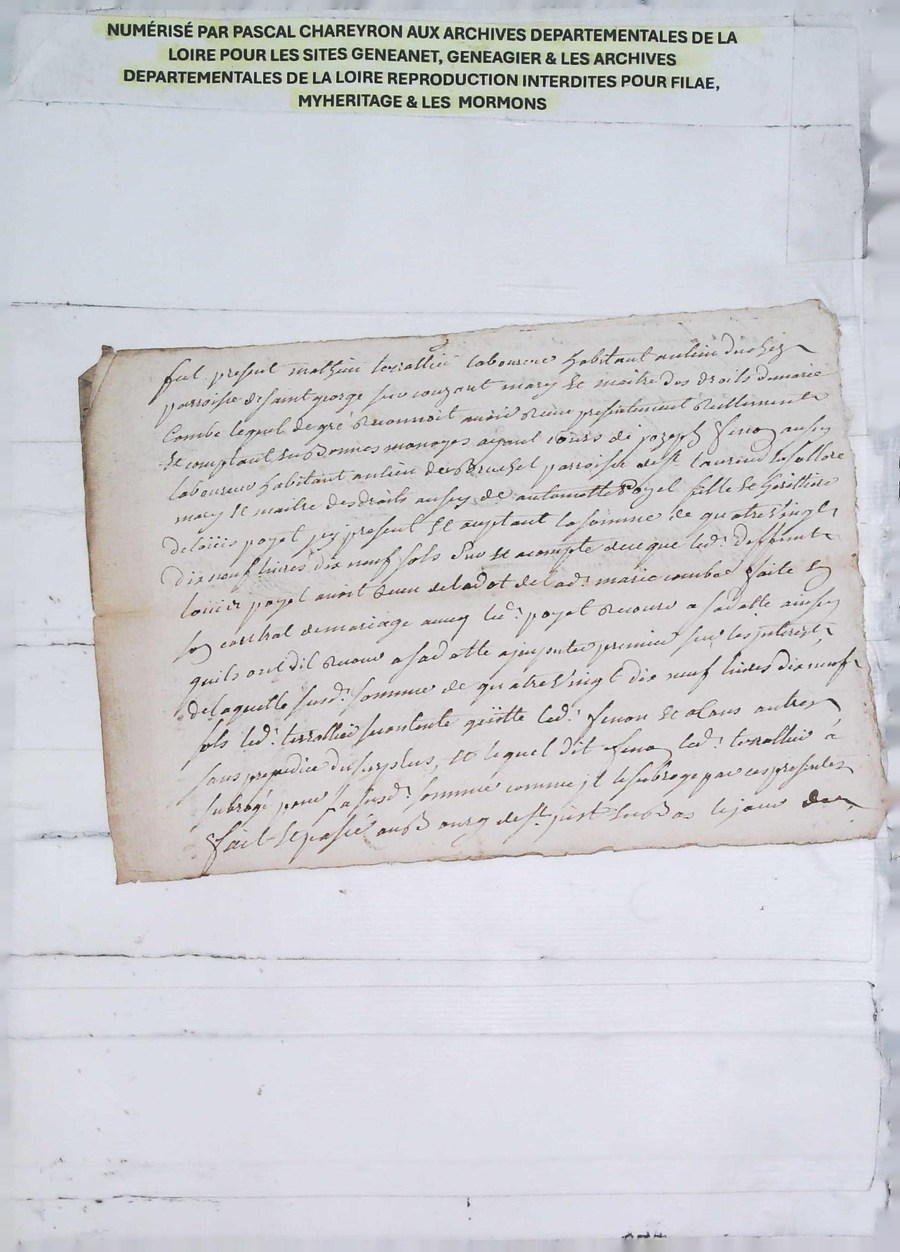 NUMÉRISÉ PAR PASCAL CHAREYRON AUX ARCHIVES DEPARTEMENTALES DE LA
LOIRE POUR LES SITES GENEANET, GENEAGIER & LES ARCHIVES
DEPARTEMENTALES DE LA LOIRE REPRODUCTION INTERDITES POUR FILAE,
MYHERITAGE & LES MORMONS
fut present mathieu terrallier laboureur habitant au lieu du
parroisse de saint george sur couzant mary et maitre des droits de marie
Combe lequel de gré reconnoit avoir receu presentement reellement
et comptant en bonnes monoyes ayant cours de jozeph fenon aussy
laboureur habitant au lieu de parroisse de st laurend
mary et maitre des droits aussy de payel fille et heritiere
de loüis payel present et acceptant la somme de quatre vingt
dix neuf livres dix neuf sols sur et acompte de ce que led. deffunt
loüis payel avoit receu de la dot de lad. marie combe faite
contrat de mariage avec led. payel receure a sad
quils ont dit receure a sad premier sur les interest
de laquelle susd. somme de quatre vingt dix neuf livres dix neuf
sols led. terrallier se contente quitte led. fenon et tous autres
sans prejudice du surplus, et lequel dit fenon led. terrallier a
subrogé pour la susd. somme comme il le subroge par ces presentes
fait et passé au bourg de st just en bas le jour